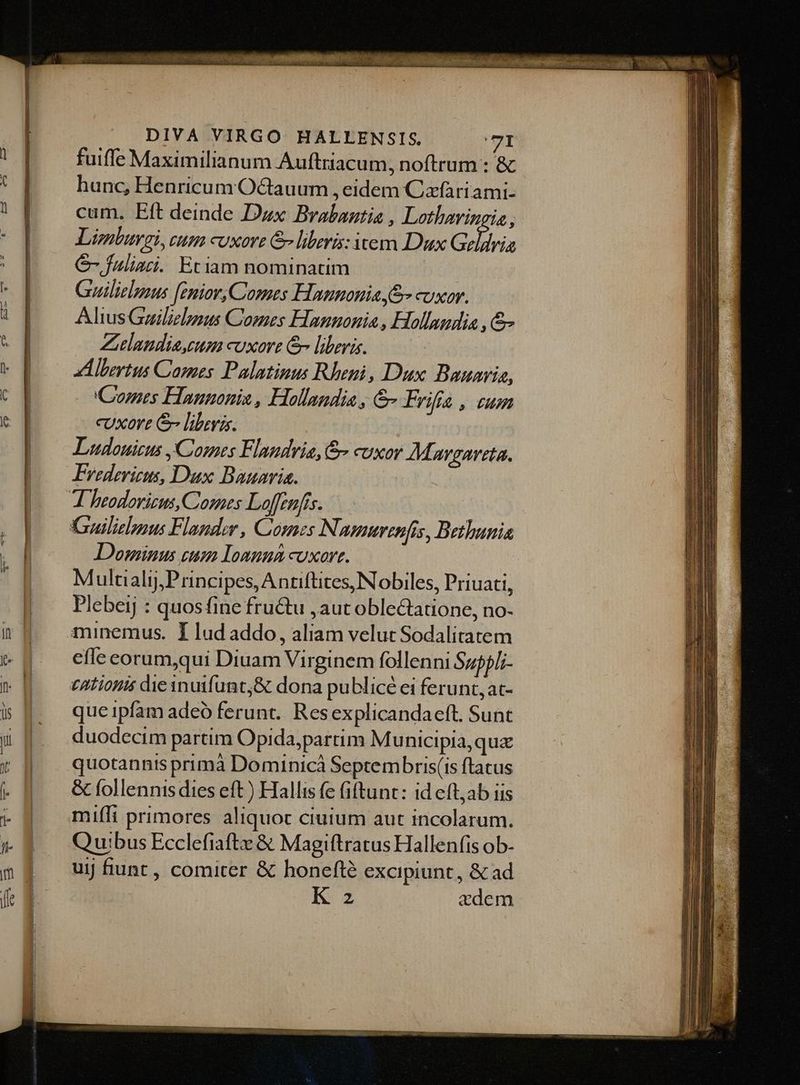 DIVA VIRGO HALLENSIS. 71
fuiſſe Maximilianum Auſtriacum, noſtrum : &
hunc, Henricum Octauum , eidem Cæſari ami-
cum. Eſt deinde Dux Brabantiæ , Lotharingiæ ,
Limburgi, cum vxore & liberis: item Dux Geldriæ
& Juliaci. Etiam nominatim
Guilielmus ſenior, Comes Hannoniæ, & vxor.
Alius Guilielmus Comes Hannoniæ , Hollandiæ , &
Zelandiæ, cum vxore & liberis.
Albertus Comes Palatinus Rheni , Dux Bauariæ,
Comes Hannoniæ , Hollandiæ , & Friſiæ , cum
vxore & liberis.
Ludouicus , Comes Flandriæ, & vxor Margareta.
Fredericus, Dux Bauariæ.
Theodoricus, Comes Loſſenſis.
Guilielmus Flander , Comes Namurenſis, Bethuniæ
Dominus cum Ioannâ vxore.
Multi alij, Principes, Antiſtites, Nobiles, Priuati,
Plebeij : quos ſine fructu , aut oblectatione, no-
minemus. Illud addo, aliam velut Sodalitatem
eſſe eorum, qui Diuam Virginem ſollenni Suppli-
cationis die inuiſunt, & dona publicè ei ferunt, at-
que ipſam adeò ferunt. Res explicanda eſt. Sunt
duodecim partim Opida, partim Municipia, quæ
quotannis primâ Dominicâ Septembris (is ſtatus
& ſollennis dies eſt ) Hallis ſe ſiſtunt: id eſt, ab iis
miſſi primores aliquot ciuium aut incolarum.
Quibus Eccleſiaſtæ & Magiſtratus Hallenſis ob-
uij fiunt , comiter & honeſtè excipiunt , & ad
K 2 ædem